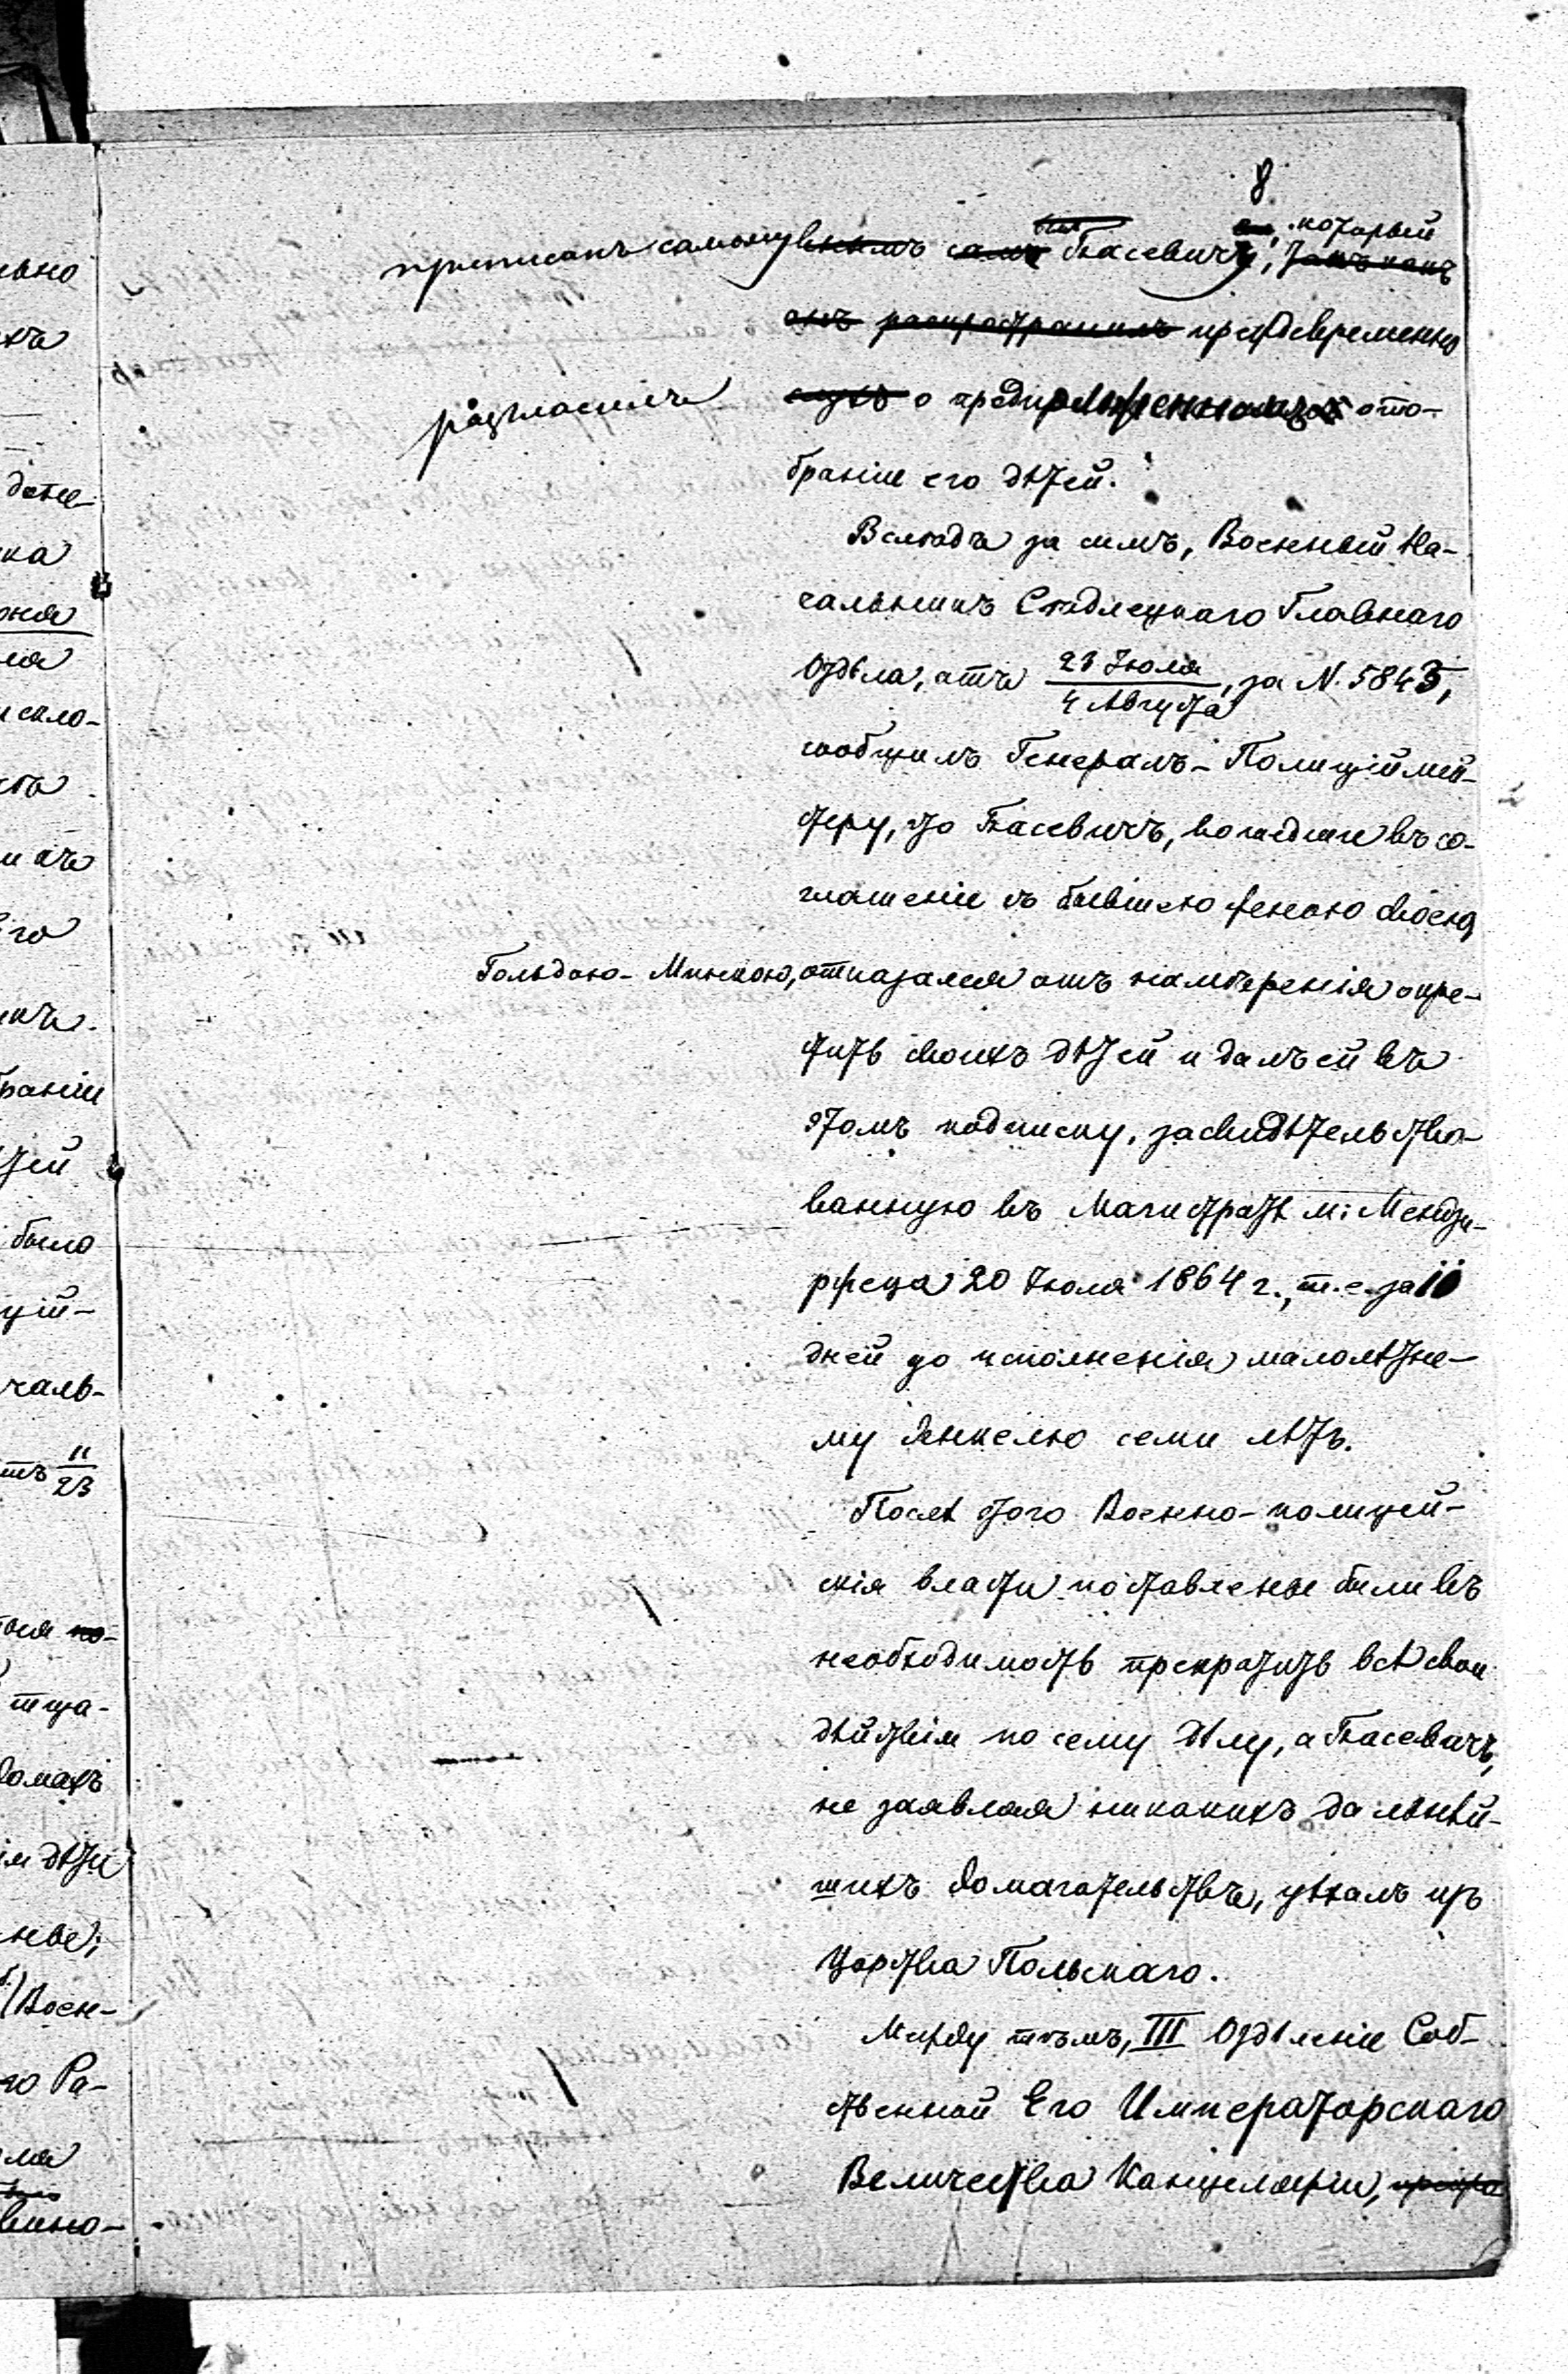 8
который
приписанъ самому виннымъ самъ Ясевичу, такъ какъ
онъ распространилъ преждевременно
разгласилъ слухъ о предположенномъ ото-
браніи его дѣтей.
Вслѣдъ за симъ, Военный На-
чальникъ Сѣдлецкаго Главнаго
Отдѣла, отъ 23 Іюля / 4 Августа, за N. 5845,
сообщилъ Генералъ-Полиціймей-
стеру, что Ясевичъ, вошедши въ со-
глашеніе съ бывшею женою своею
Гольдою-Минкою, отказался отъ намѣренія окре-
стить своихъ дѣтей и далъ ей въ
этомъ подписку, засвидѣтельство-
ванную въ Магистратѣ м: Мендзи-
ржеца 20 Іюля 1864 г., т. е. за 10
дней до исполненія малолѣтне-
му Янкелю семи лѣтъ.
Послѣ этого Военно-полицей-
скія власти поставлены были въ
необходимость прекратить всѣ свои
дѣйствія по сему дѣлу, а Ясевичъ,
не заявляя никакихъ дальнѣй-
шихъ домагательствъ, уѣхалъ изъ
Царства Польскаго.
Между тѣмъ, III Отдѣленіе Соб-
ственной Его Императорскаго
Величества Канцеляріи,